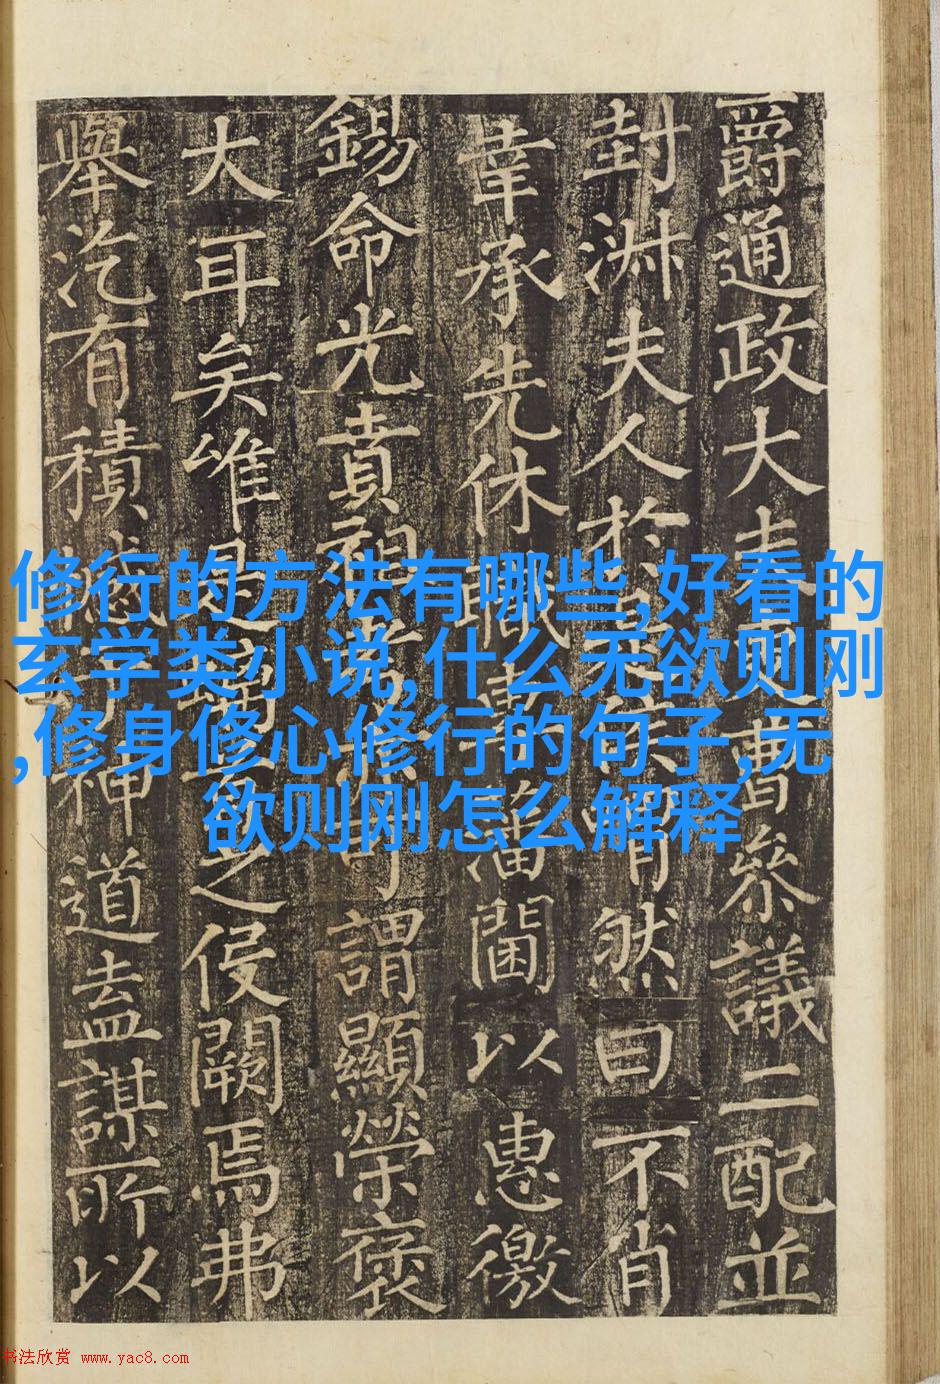 爵通政大夫曹參議二配並
封淑夫人於然曰不肖
幸承先休職藩閫以惠徼
錫命光賁祖可謂顯榮褒
大耳矣唯是之侵闕焉弗
舉汔有積憾神道盍謀所以
修行的方法有哪些,好看的
玄学类小说,什么无欲则刚
,修身修心修行的句子,无
欲则刚怎么解释
书法欣赏 www.yac8.com